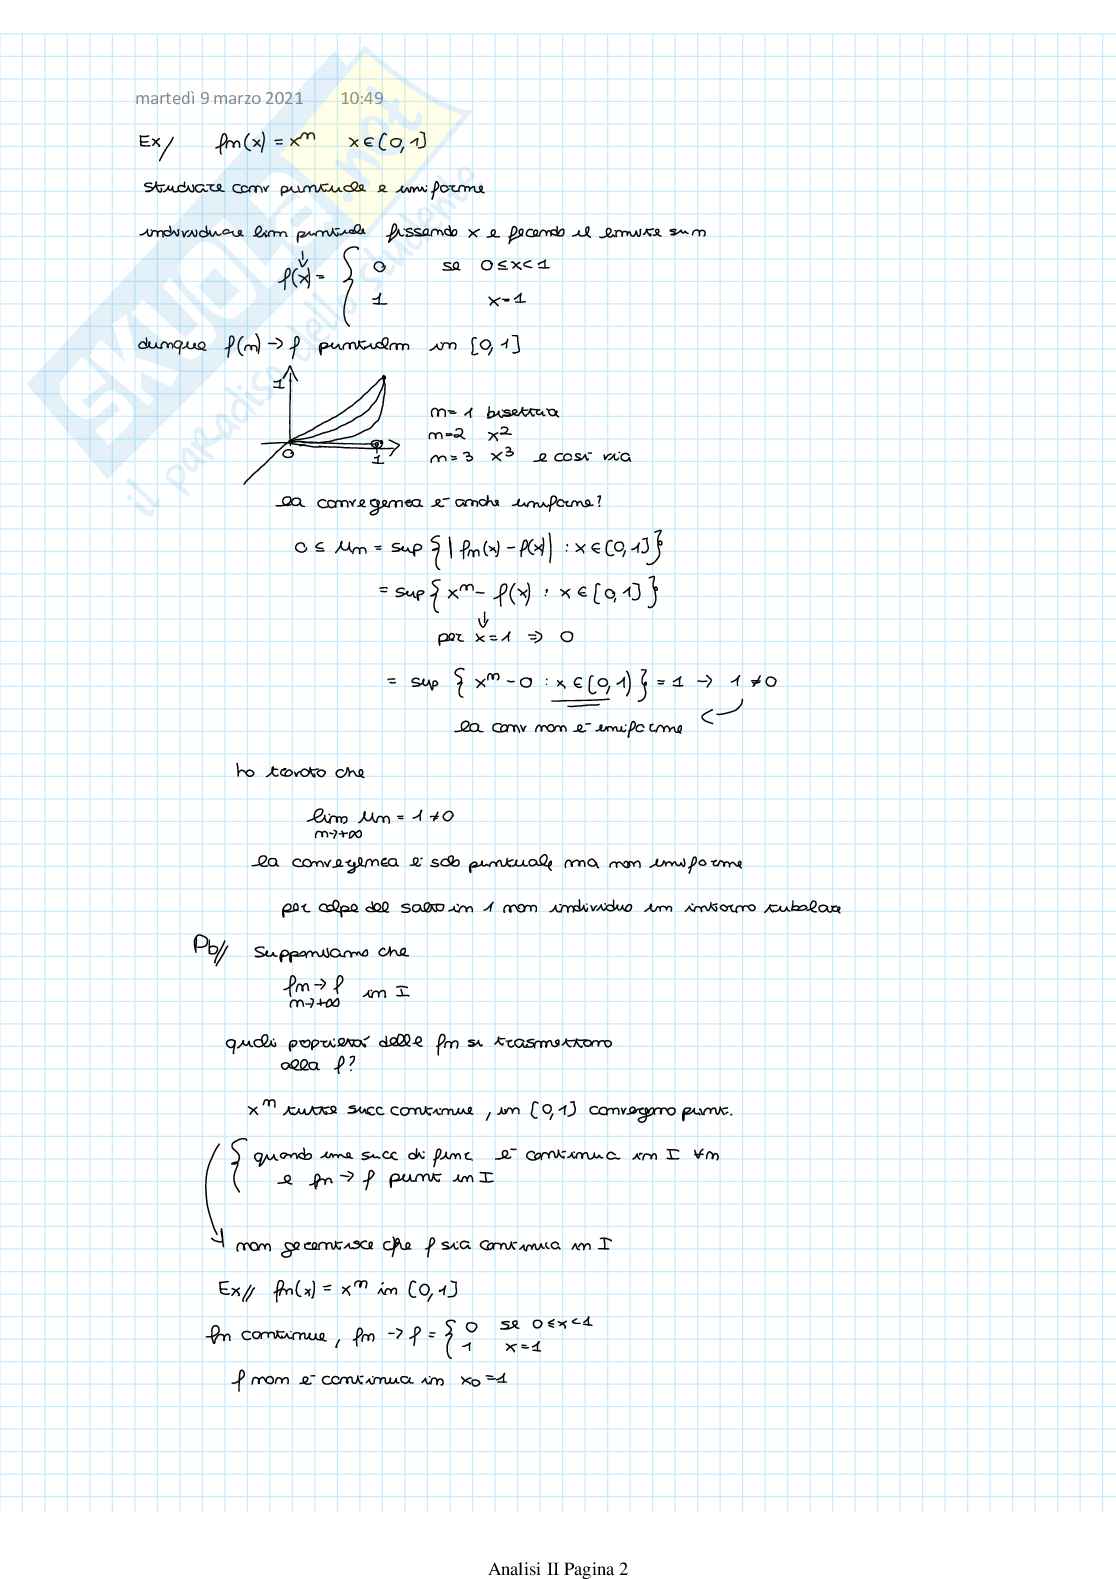 martedì 9 marzo 2021 10:49
Ex/ fn(x) = x^n x ∈ [0,1]
studiare conv puntuale e uniforme
individuare lim puntuale fissando x e facendo il limite su n
f(x) = { 0 se 0≤x<1
1 x=1
dunque f(n) → f puntualm in [0,1]
1
0
1
n=1 bisettrice
n=2 x^2
n=3 x^3 e così via
la convergenza è anche uniforme?
0 ≤ μn = sup { | fn(x) - f(x) | : x ∈ [0,1] }
= sup { x^n - f(x) : x ∈ [0,1] }
per x=1 ⇒ 0
= sup { x^n - 0 : x ∈ [0,1) } = 1 → 1 ≠ 0
la conv non è uniforme
ho trovato che
lim μn = 1 ≠ 0
n→+∞
la convergenza è solo puntuale ma non uniforme
per colpa del salto in 1 non individuo un intorno tubolare
Pb// Supponiamo che
fn → f in I
n→+∞
quali proprietà delle fn si trasmettono
alla f?
x^n tutte succ continue, in [0,1] convergono punt.
{ quando una succ di func è continua in I ∀n
e fn → f punt in I
non garantisce che f sia continua in I
Ex// fn(x) = x^n in [0,1]
fn continue, fn → f = { 0 se 0≤x<1
1 x=1
f non è continua in x0=1
SKUOLA.net
il paradiso dello studente
Analisi II Pagina 2